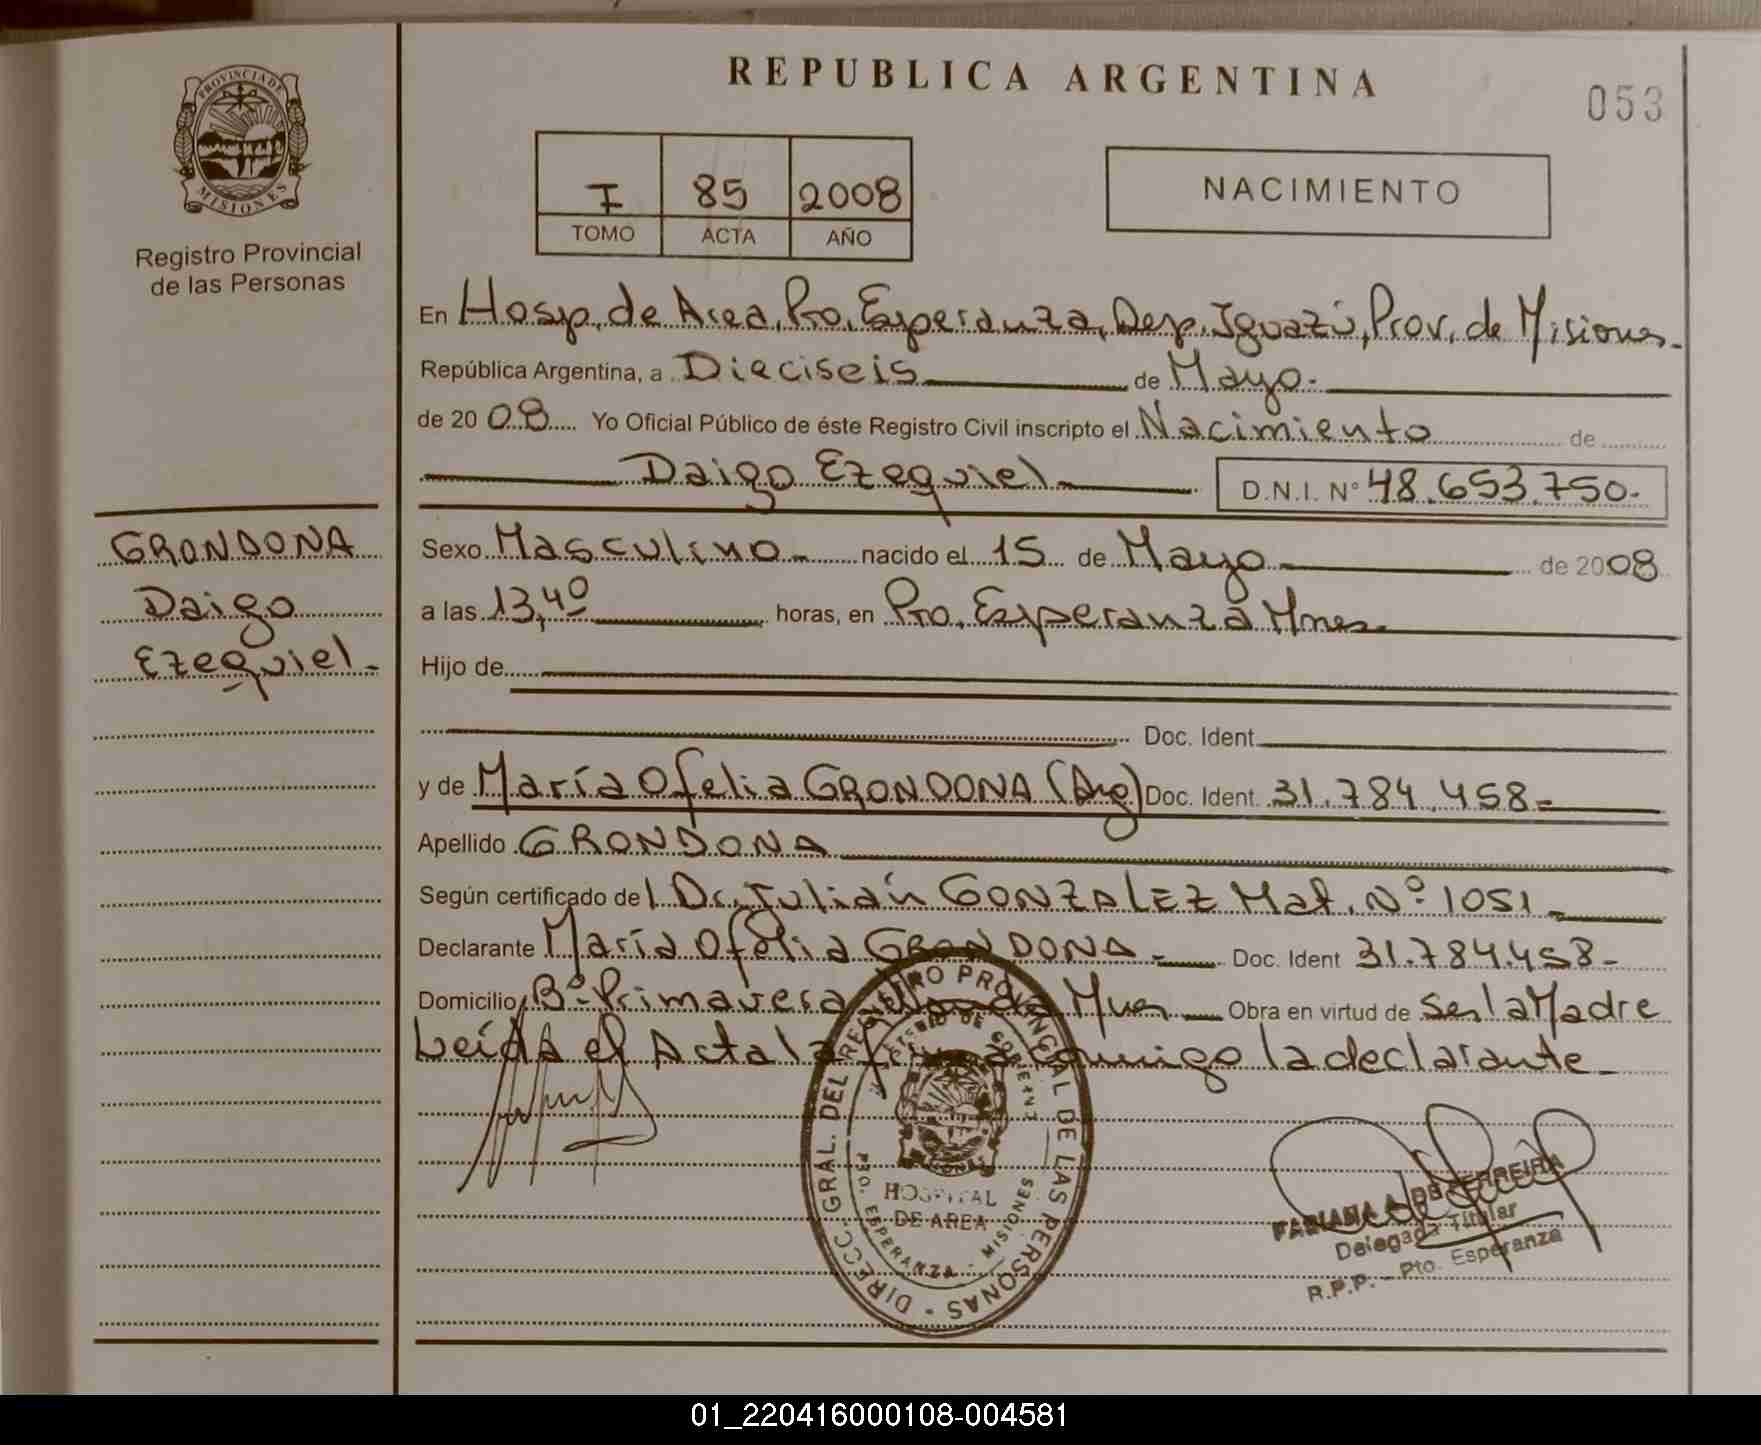 REPUBLICA ARGENTINA
053
PROVINCIA DE
MISIONES
Registro Provincial
de las Personas
I 85 2008
TOMO ACTA AÑO
NACIMIENTO
En Hosp. de Area, Pto. Esperanza, Dep. Iguazú, Prov. de Misiones.
República Argentina, a Dieciseis de Mayo.
de 2008 Yo Oficial Público de éste Registro Civil inscripto el Nacimiento de
Daigo Ezequiel D.N.I. Nº 48.653.750.
GRONDONA
Daigo
Ezequiel.
Sexo Masculino nacido el 15 de Mayo de 2008
a las 13,40 horas, en Pto. Esperanza Mnes.
Hijo de
Doc. Ident.
y de María Ofelia GRONDONA (Arg) Doc. Ident. 31.784.458
Apellido GRONDONA
Según certificado del Dr. Julián GONZALEZ Mat. Nº 1051
Declarante María Ofelia GRONDONA Doc. Ident 31.784.458
Domicilio Bº Primavera Mnes Obra en virtud de Ser la Madre
Leída el Acta la firma conmigo la declarante
DIRECC. GRAL. DEL REGISTRO PROVINCIAL DE LAS PERSONAS
HOSPITAL
DE AREA
PTO. ESPERANZA - MISIONES
FABIANA A. DE FERREIRA
Delegada Titular
R.P.P. - Pto. Esperanza
01_220416000108-004581